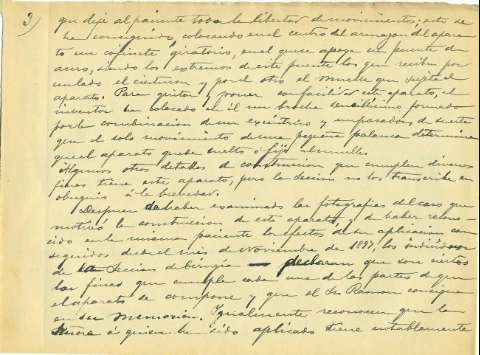 3)
que deje al paciente toda la libertad de movimientos; esto se
ha conseguido, colocando en el centro del armazon del apara-
to un cojinete giratorio, en el que se apoya un puente de
acero, siendo los extremos de este puente los que reciben por
un lado el cinturon y por el otro el muelle que sujeta el
aparato. Para quitar y poner con facilidad este aparato, el
inventor ha colocado en él un broche sencillísimo formado
por la combinacion de un excéntrico y un pasador, de suerte
que el solo movimiento de una pequeña palanca determina
que el aparato quede suelto o fijo
Algunos otros detalles de construccion que cumplen diversos
fines tiene este aparato, pero la Seccion no los transcribe en
obsequio á la brevedad.
Despues de haber examinado las fotografias del caso que
motivó la construccion de este aparato, y de haber recono-
cido en la misma paciente los efectos de su aplicacion con-
seguidos desde el mes de Noviembre de 1897, los individuos
de la Seccion de Cirugía declaran que son ciertos
los fines que cumple cada una de las partes de que
el aparato se compone y que el Sr. Ramon consigna
en su Memoria. Igualmente reconocen que la
Señora á quien ha sido aplicado tiene notablemente